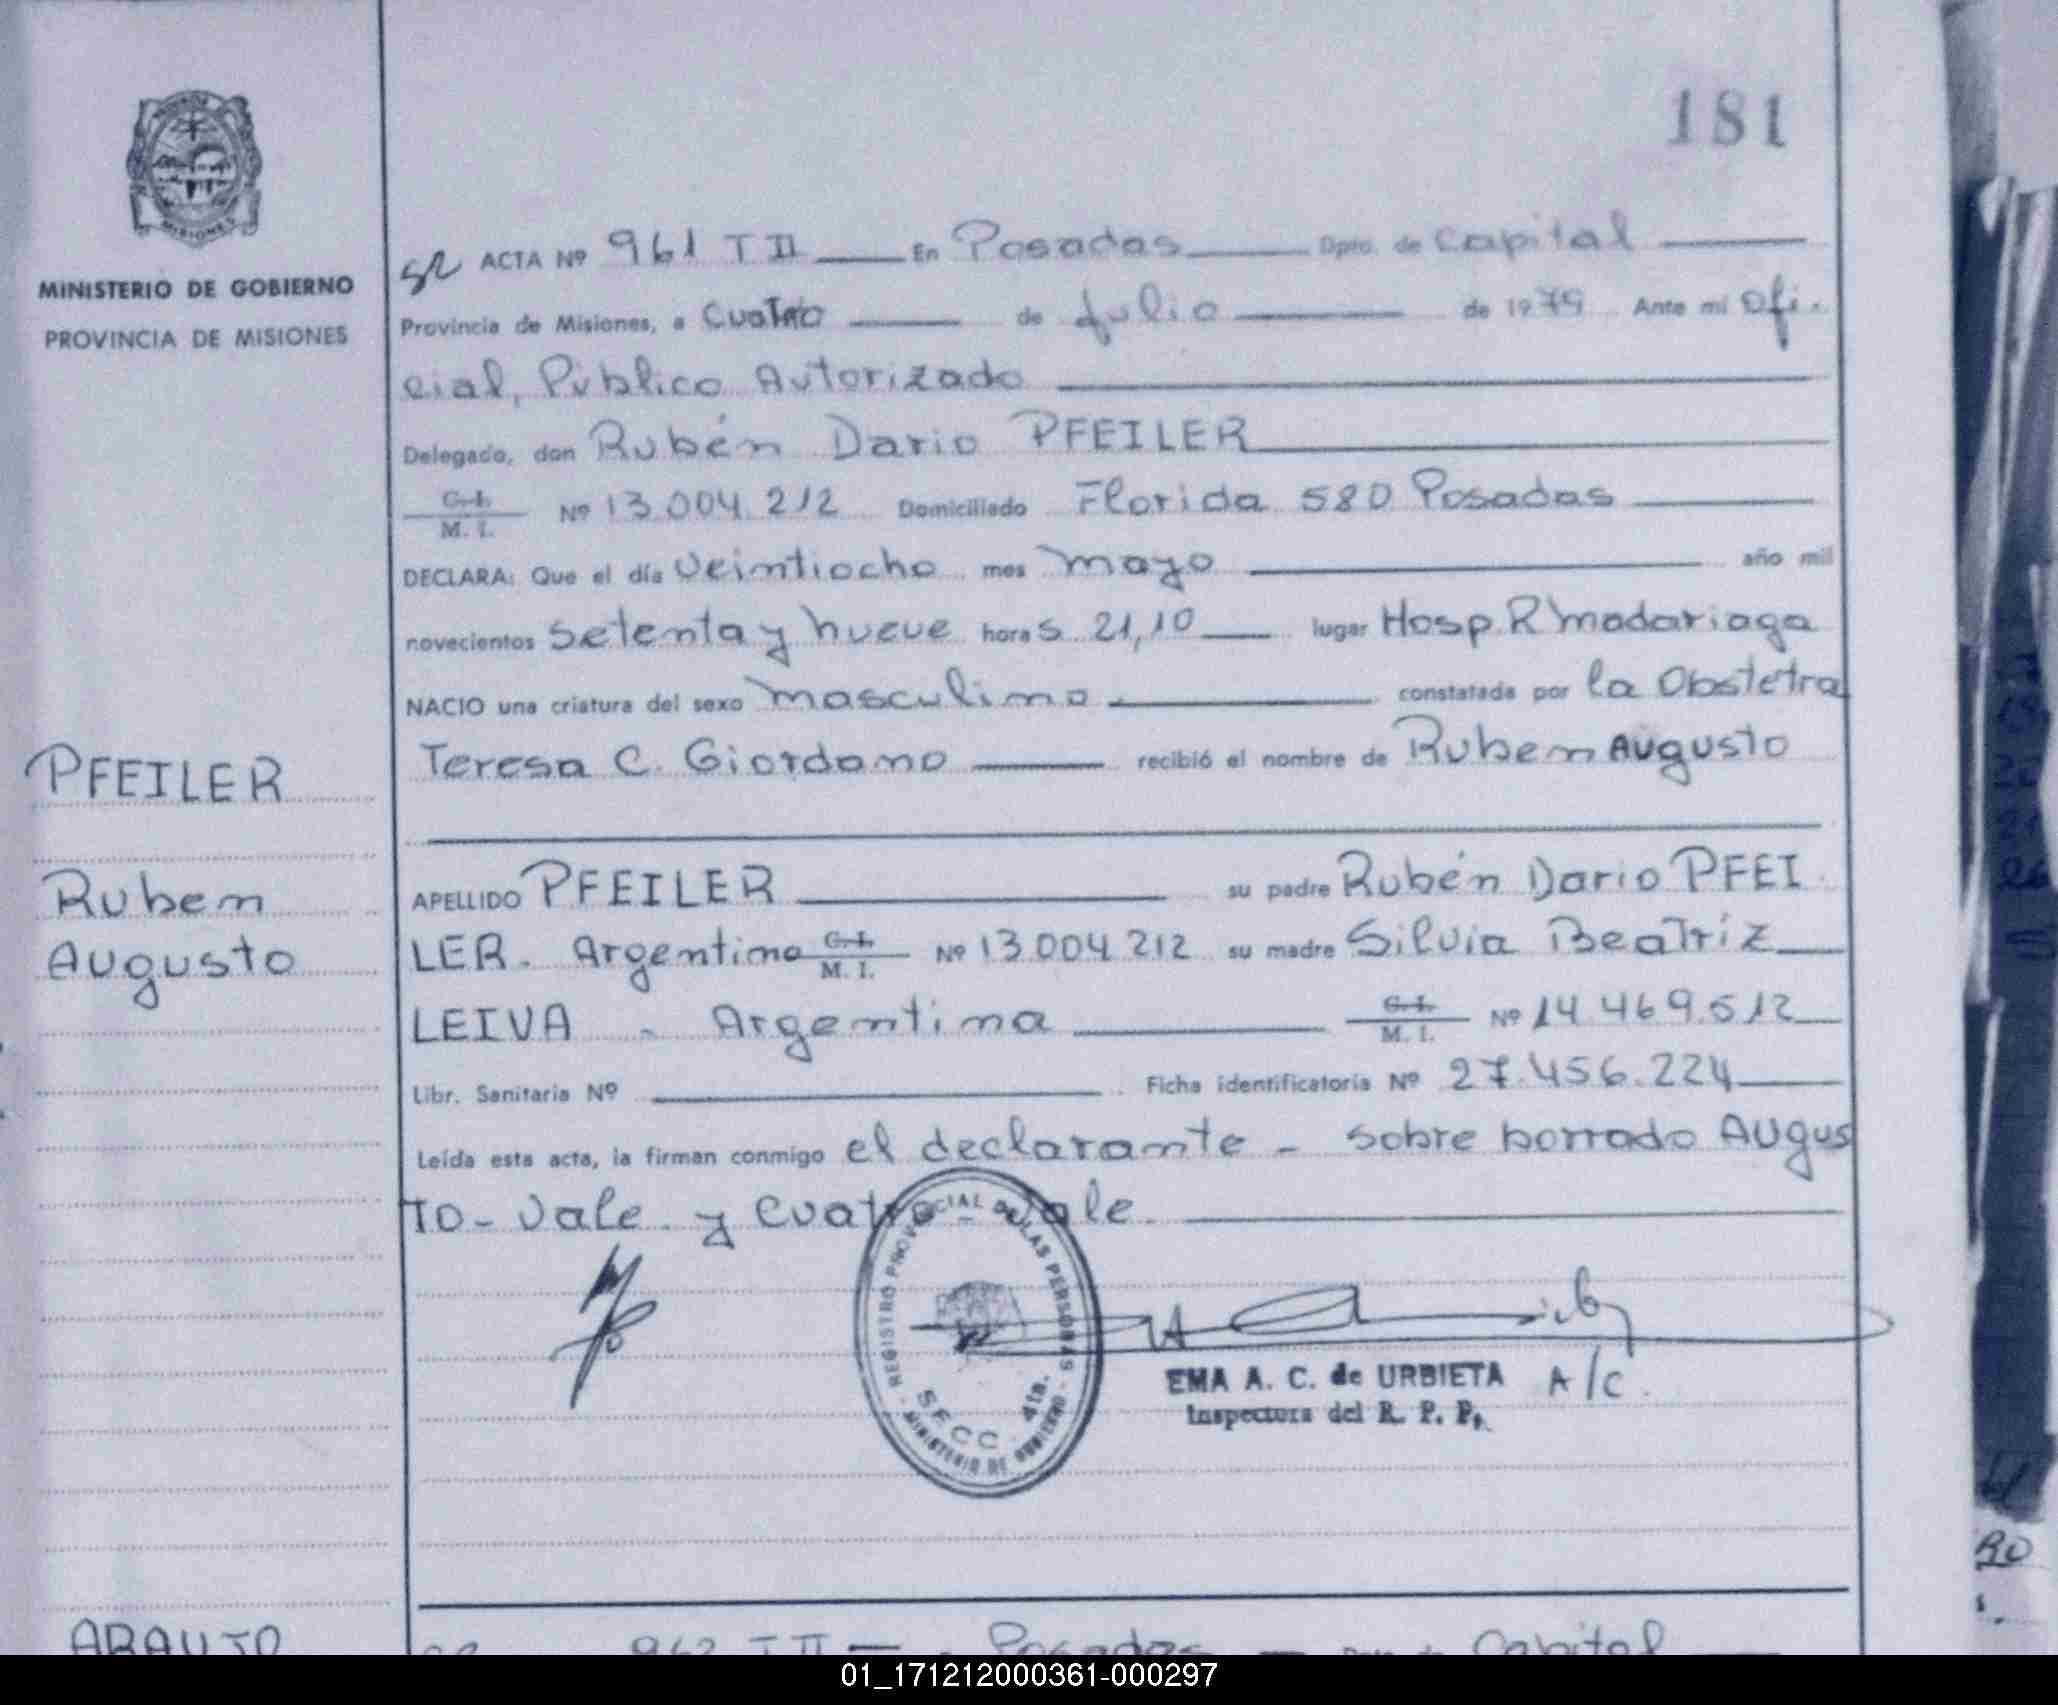 181
MISIONES
MINISTERIO DE GOBIERNO
PROVINCIA DE MISIONES
SR ACTA Nº 961 T II En Posadas Dpto. de Capital
Provincia de Misiones, a cuatro de Julio de 1979 Ante mi Ofi.
cial, Público Autorizado
Delegado, don Rubén Dario PFEILER
C. I. M. I. Nº 13.004.212 Domiciliado Florida 580 Posadas
DECLARA: Que el día veintiocho mes mayo año mil
novecientos setenta y nueve horas 21,10 lugar Hosp. R madariaga
NACIO una criatura del sexo masculino. constatada por la Obstetra
Teresa C. Giordano recibió el nombre de Ruben Augusto
PFEILER
Ruben
Augusto
APELLIDO PFEILER su padre Rubén Dario PFEI
LER. Argentino C. I. M. I. Nº 13.004.212 su madre Silvia Beatriz
LEIVA - Argentina C. I. M. I. Nº 14.469.512
Libr. Sanitaria Nº Ficha identificatoria Nº 27.456.224
Leída esta acta, la firman conmigo el declarante - sobre borrado Augus
to - Vale. y cuatro - Vale.
REGISTRO PROVINCIAL DE LAS PERSONAS
SECC. 4ta.
MINISTERIO DE GOBIERNO
EMA A. C. de URBIETA A/C.
Inspectora del R. P. P.
ARAUJO
962 T II - Posadas Dpto. de Capital
01_171212000361-000297